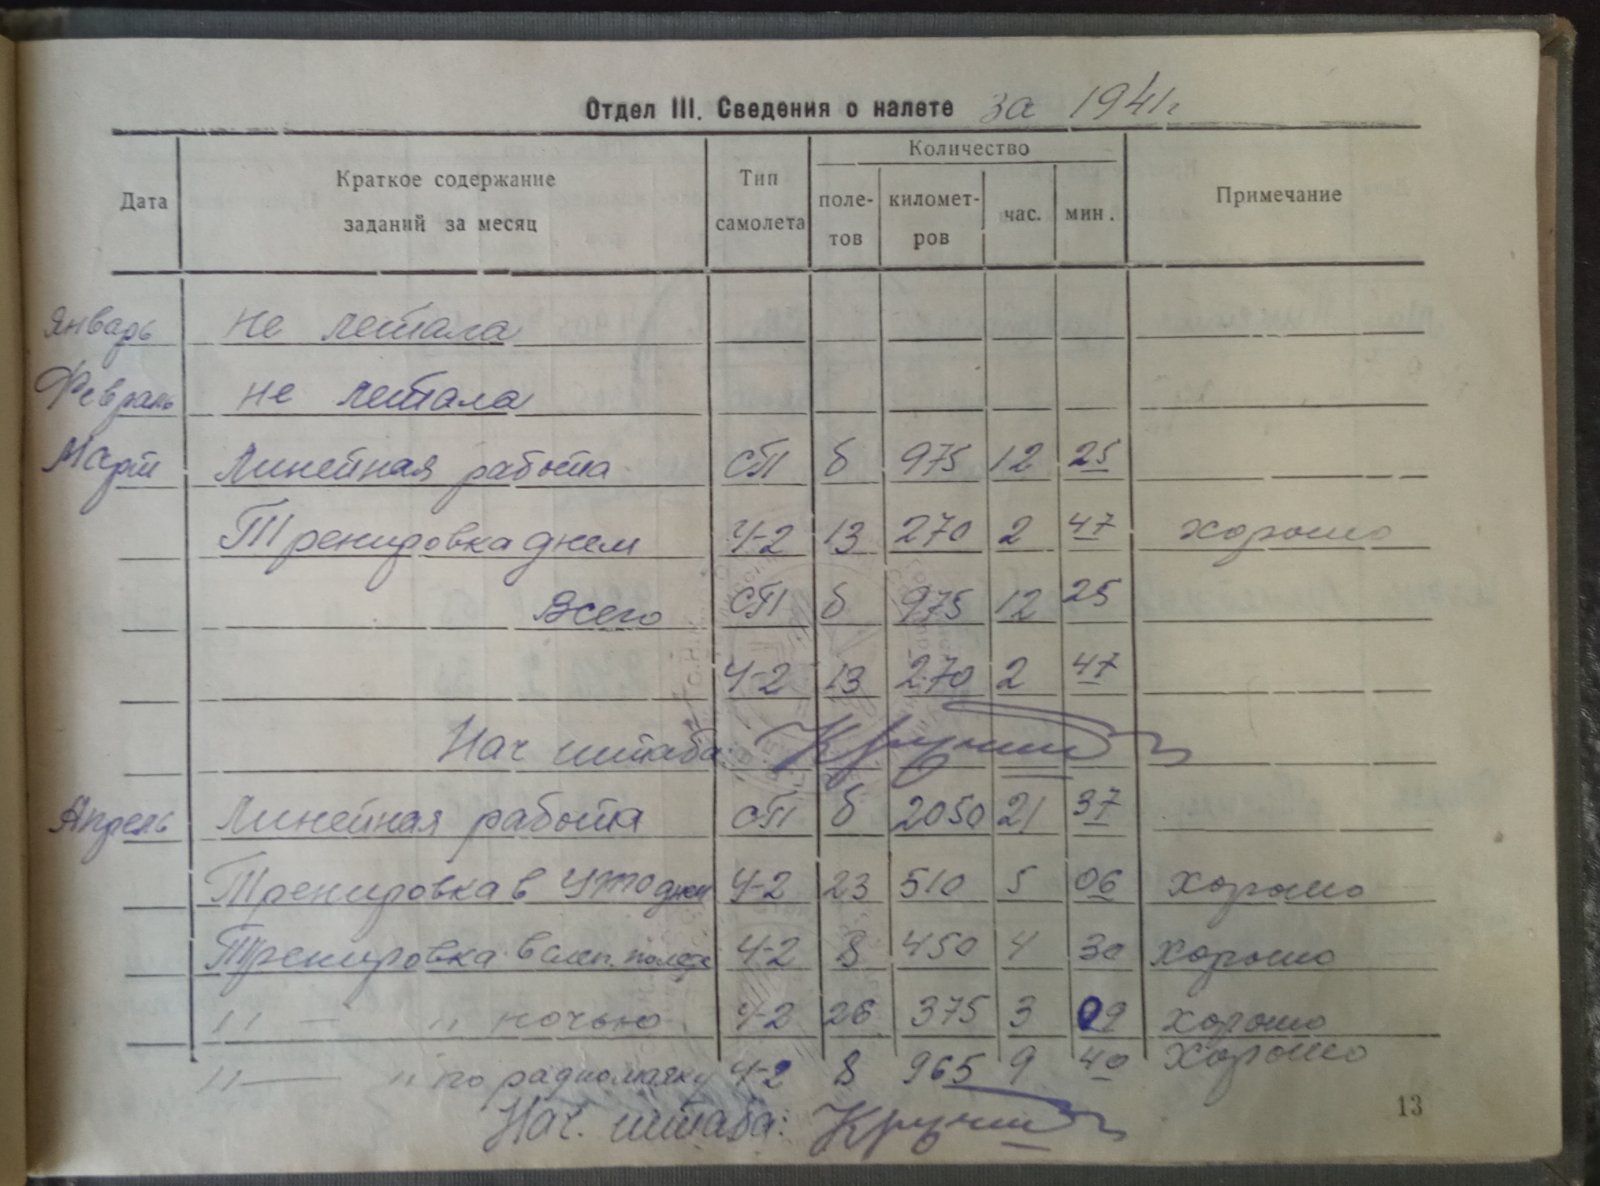 Отдел III. Сведения о налете за 1941г
Дата Краткое содержание заданий за месяц Тип самолета Количество полетов километров час. мин. Примечание
Январь не летала
Февраль не летала
Март Линейная работа СП 6 975 12 25
Тренировка днем У-2 13 270 2 47 хорошо
Всего СП 6 975 12 25
У-2 13 270 2 47
Нач штаба:
Апрель Линейная работа СП 6 2050 21 37
Тренировка в УТО днем У-2 23 510 5 06 хорошо
Тренировка в слеп. полете У-2 8 450 4 30 хорошо
"—" ночью У-2 26 375 3 09 хорошо
"—" по радиомаяку У-2 8 965 9 40 хорошо
Нач. штаба:
13